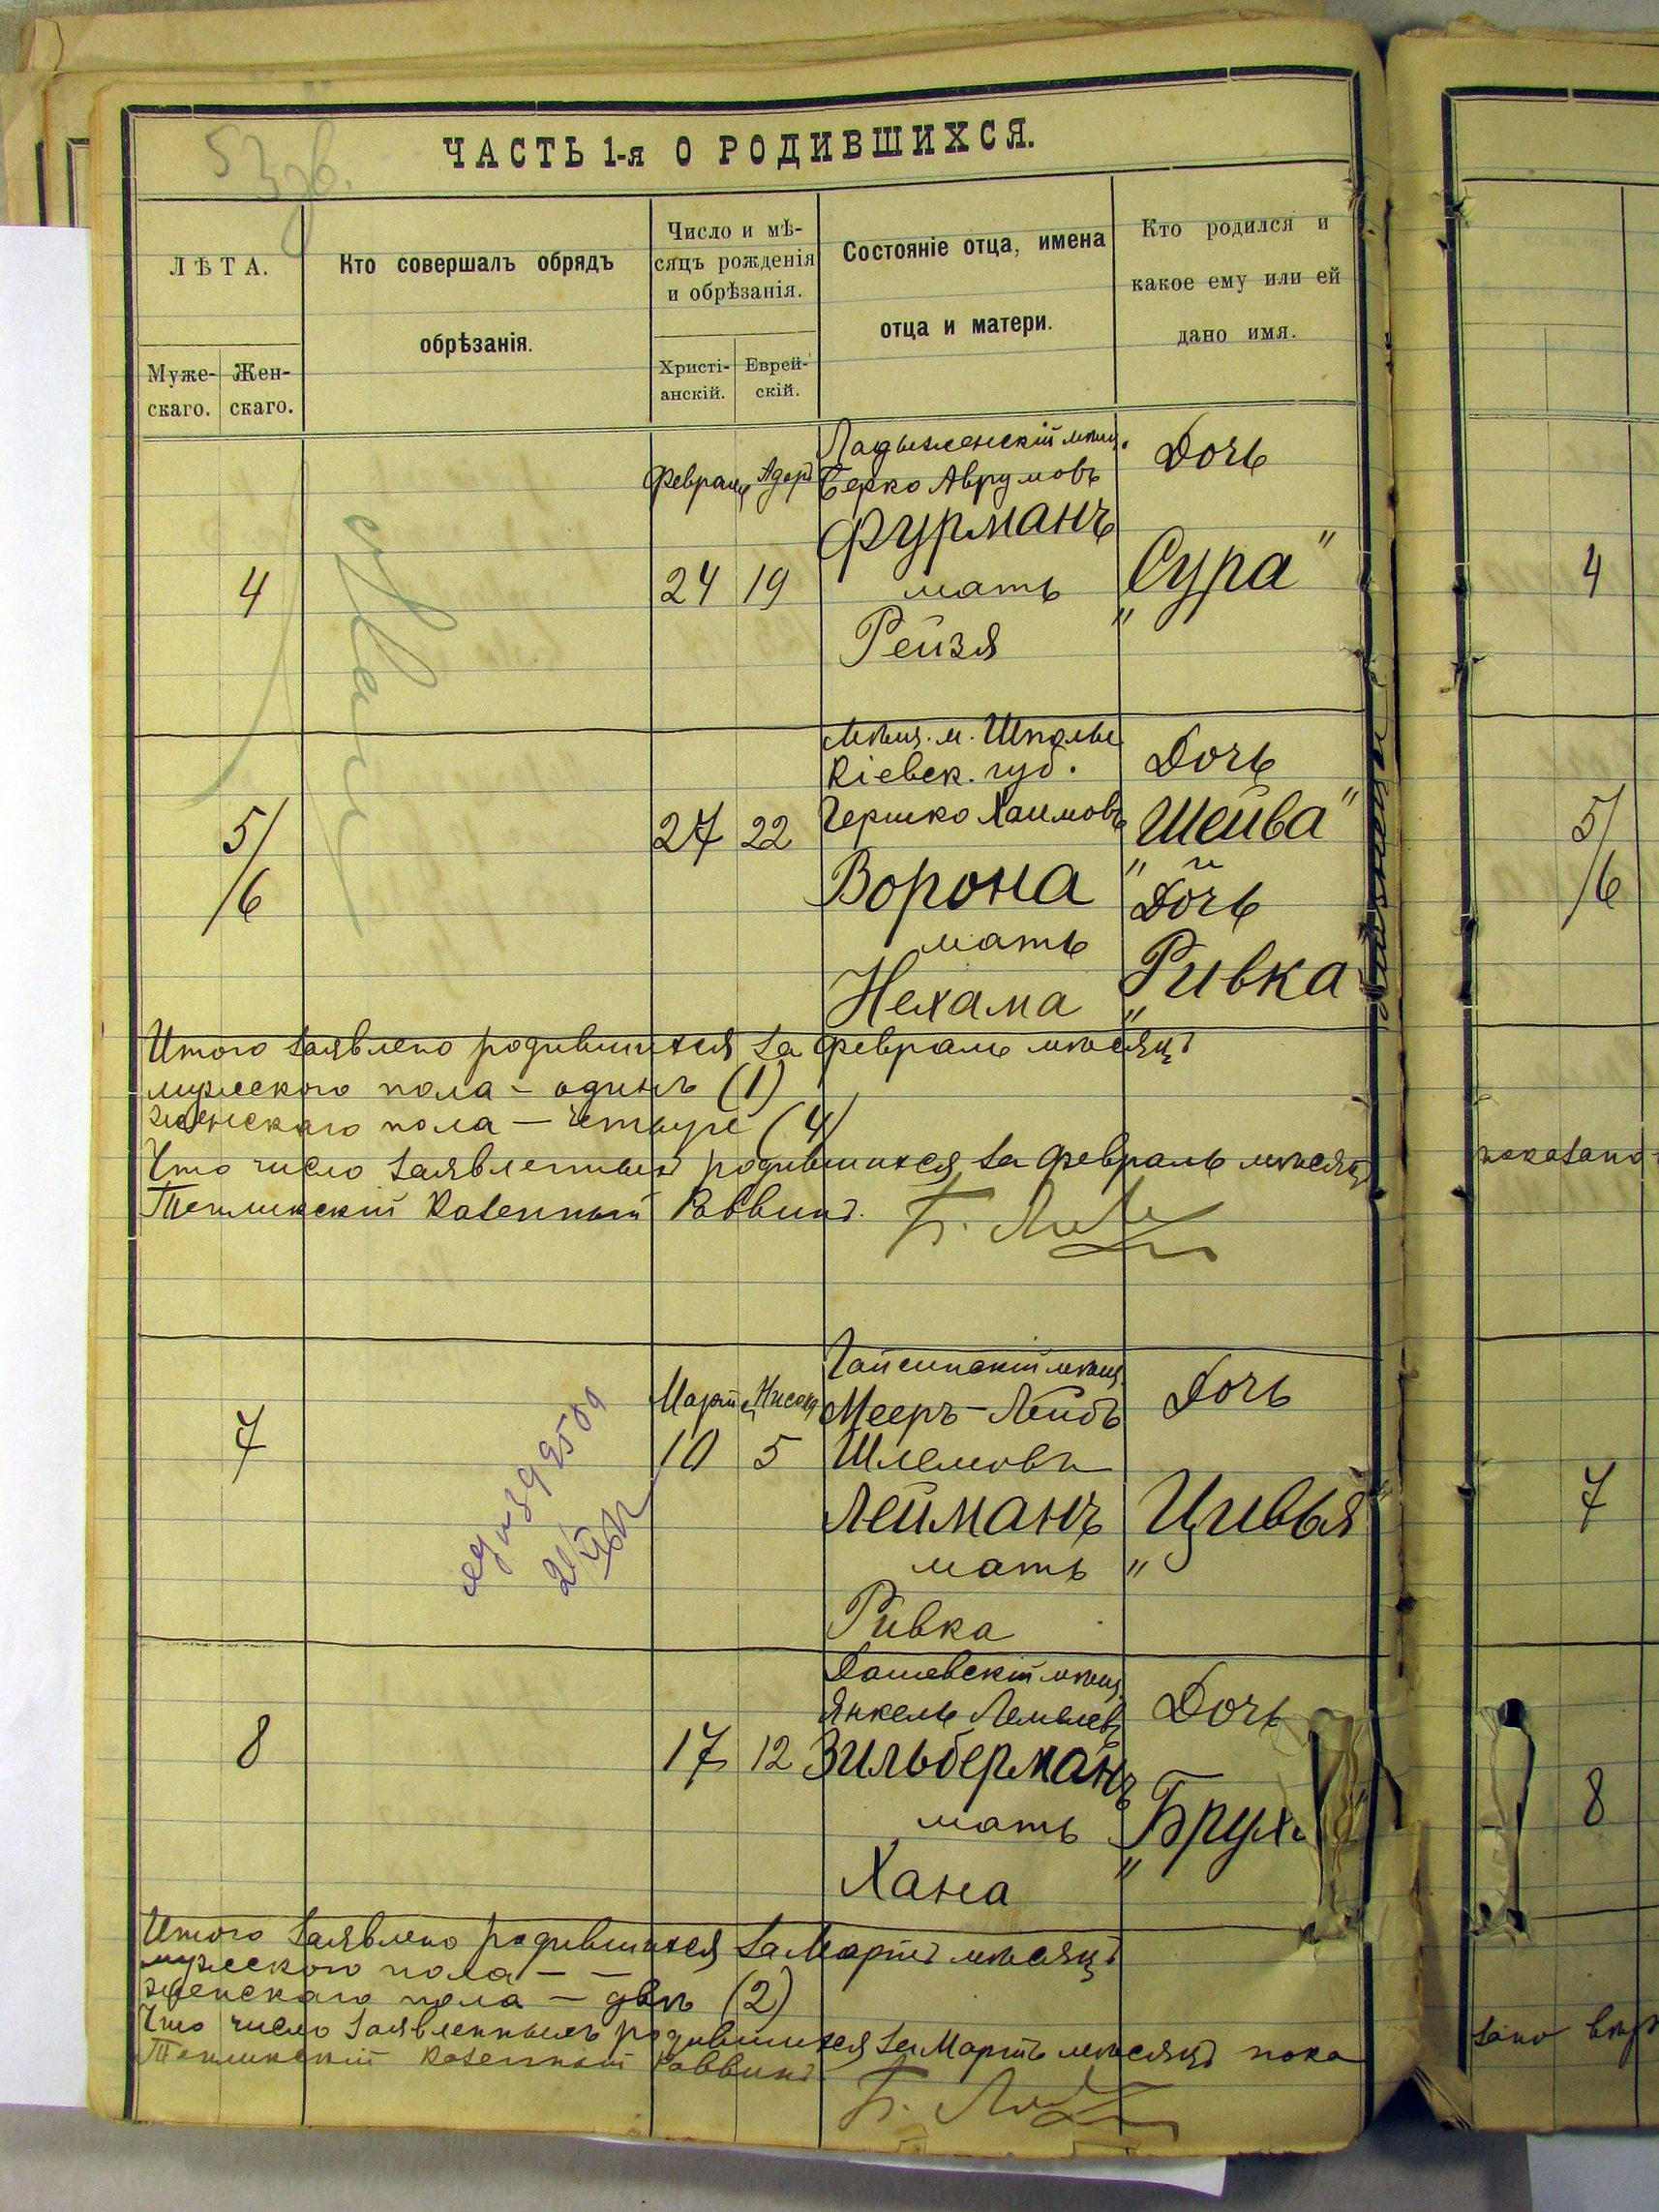 53 об.
ЧАСТЬ 1-я О РОДИВШИХСЯ.
ЛѢТА.
Муже-
скаго.
Жен-
скаго.
Кто совершалъ обрядъ
обрѣзанія.
Число и мѣ-
сяцъ рожденія
и обрѣзанія.
Христі-
анскій.
Еврей-
скій.
Состояніе отца, имена
отца и матери.
Кто родился и
какое ему или ей
дано имя.
4
Февраль
24
Адоръ
19
Ладыженскій мѣщ.
Берко Аврумовъ
Фурманъ
мать
Рейзя
Дочь
"Сура"
4
5/
/6
27
22
Мѣщ. м. Шполы
Кіевск. губ.
Гершко Хаимовъ
Ворона
мать
Нехама
Дочь
"Шейва"
и
Дочь
"Ривка
5/
/6
Итого заявлено родившихся за февраль мѣсяцъ
мужескаго пола - одинъ (1)
женскаго пола - четыре (4)
Что число заявленныхъ родившихся за февраль мѣсяцъ
показано
Тепликскій Казенный Раввинъ.
7
Мартъ
10
Нисонъ
5
Гайсинскій мѣщ.
Мееръ-Лейбъ
Шлемовъ
Лейманъ
мать
Ривка
Дочь
"Цивья
7
8
17
12
Дашевскій мѣщ.
Янкель Лемелевъ
Зильберманъ
мать
Хана
Дочь
"Брух
8
Итого заявлено родившихся за Мартъ мѣсяцъ
мужескаго пола - -
женскаго пола - двѣ (2)
Что число заявленныхъ родившихся за Мартъ мѣсяцъ пока
зано
Тепликскій Казенный Раввинъ